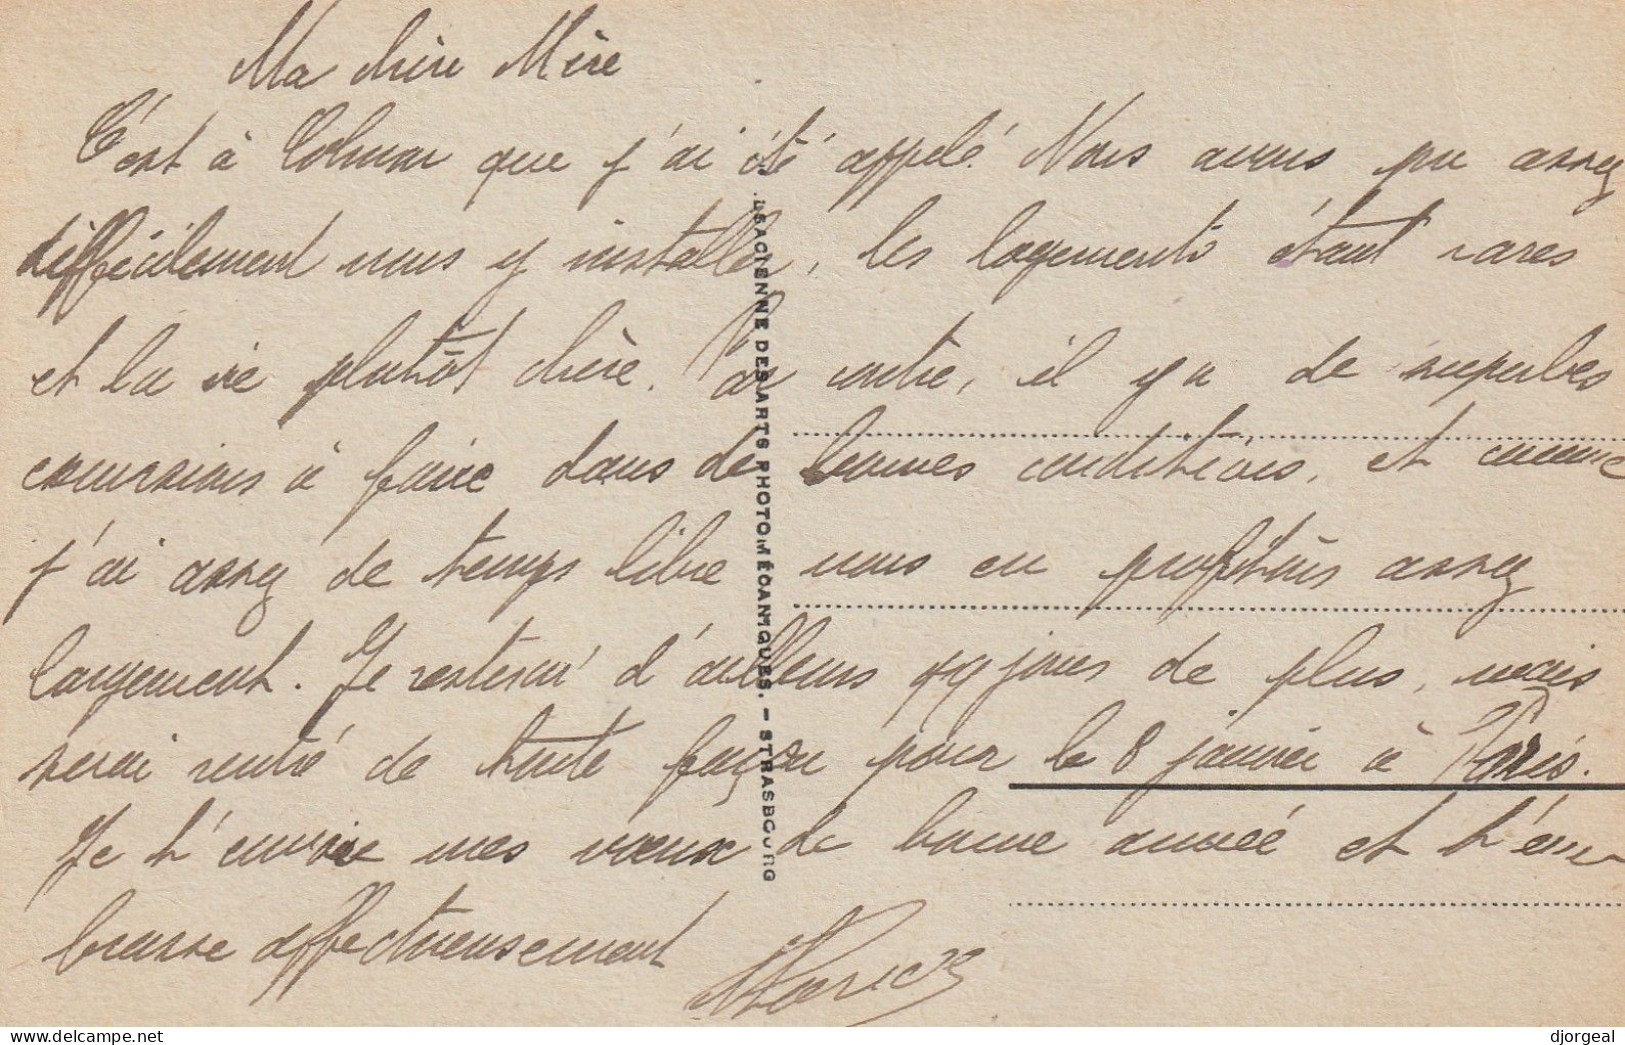 Ma chère Mère
C'est à Colmar que j'ai été appelé. Nous avons pu assez
difficilement nous y installer, les logements étant rares
et la vie plutôt chère. Par contre, il y a de superbes
excursions à faire dans de bonnes conditions, et comme
j'ai assez de temps libre nous en profitons assez
largement. Je resterai d'ailleurs jours de plus, mais
serai rentré de toute façon pour le 8 janvier à Paris.
Je t'envoie mes vœux de bonne année et t'em
brasse affectueusement
ALSACIENNE DES ARTS PHOTOMÉCANIQUES. — STRASBOURG
djorgeal